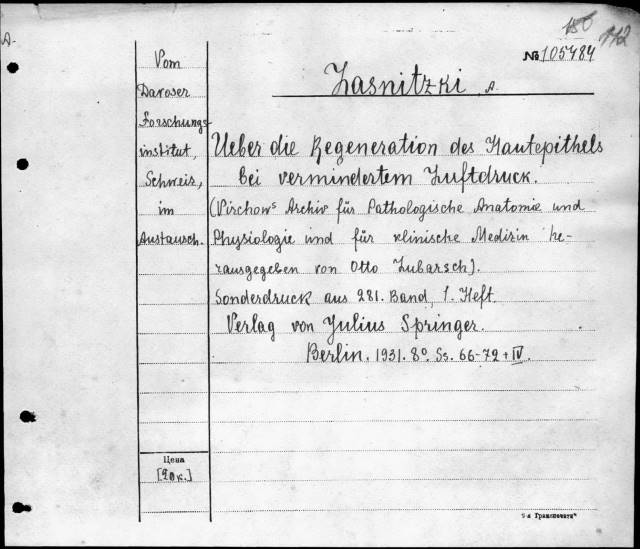 A.
150 112
№ 105484
Lasnitzki, A.
Vom
Davoser
Forschungs-
institut,
Schweiz,
im
Austausch.
Ueber die Regeneration des Hautepithels
bei vermindertem Luftdruck.
(Virchows Archiv für Pathologische Anatomie und
Physiologie und für klinische Medizin he-
rausgegeben von Otto Lubarsch).
Sonderdruck aus 281. Band, 1. Heft.
Verlag von Julius Springer.
Berlin. 1931. 8° Ss. 66-72 + IV.
Цена
[20 к.]